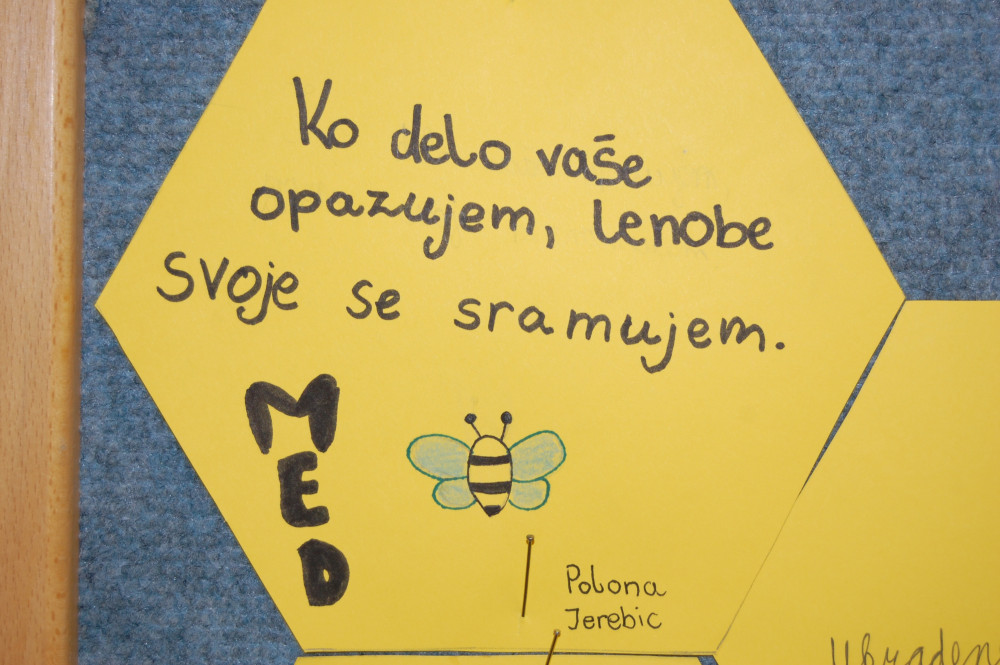 Ko delo vaše
opazujem, lenobe
svoje se sramujem.
MED
Polona
Jerebic